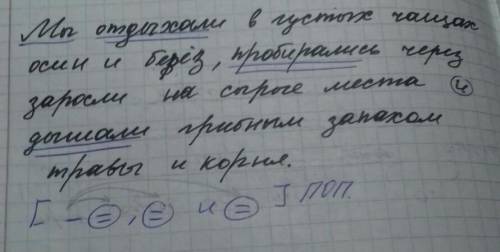 Мы отдыхали в густых чащах
осин и берёз, пробирались через
заросли на сырые места и
дышали грибным запахом
травы и корня.
[ – =, = и = ] ПОП.